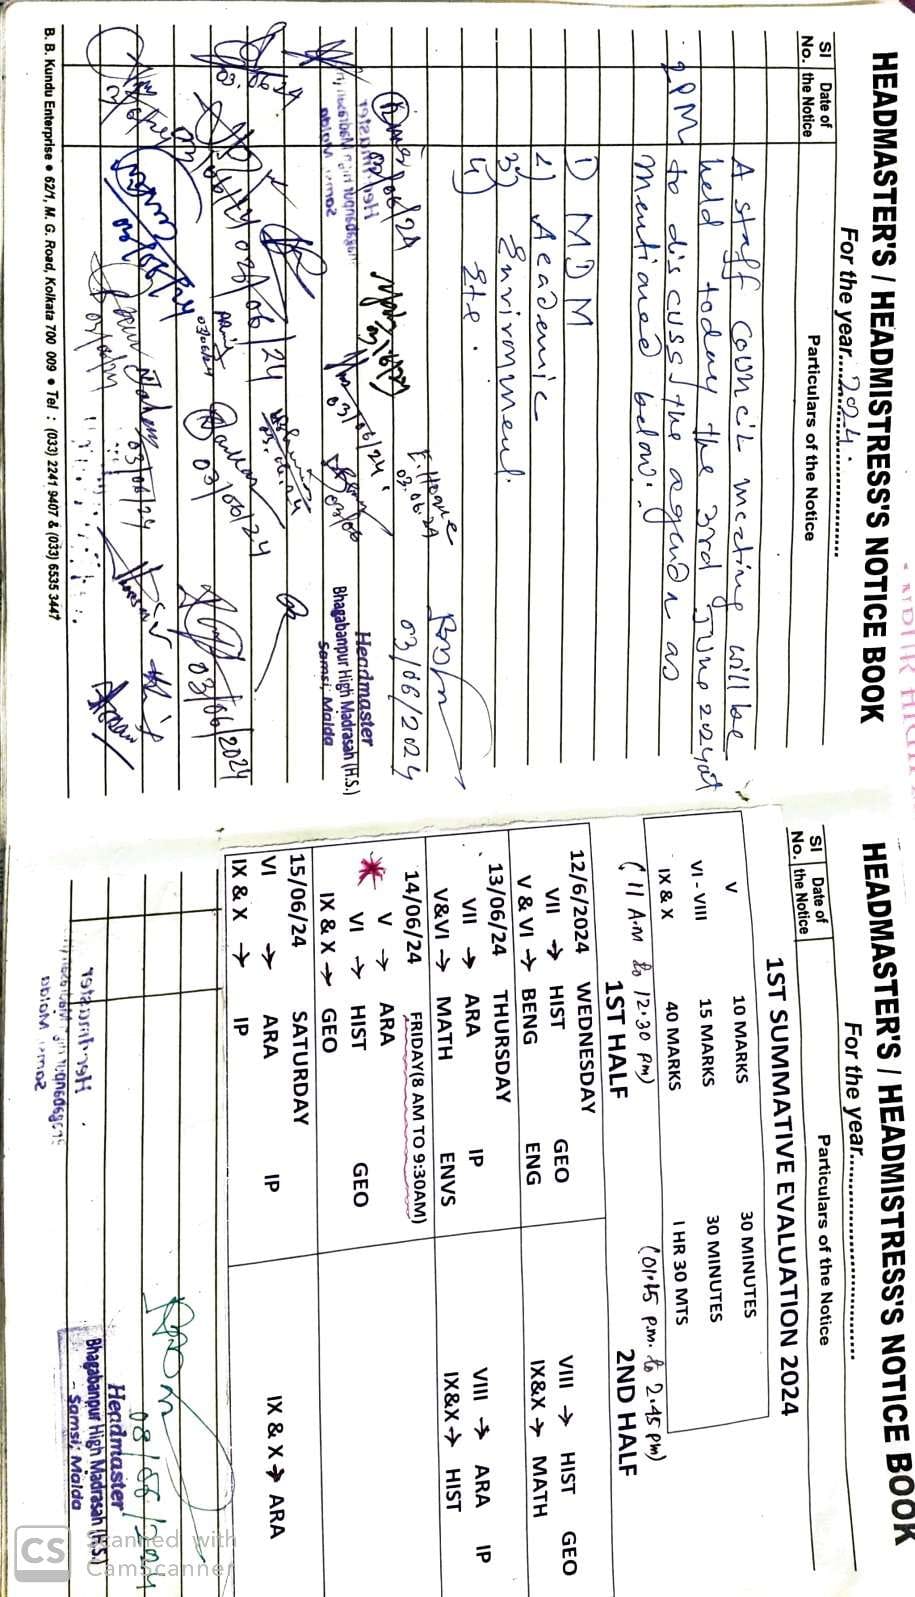 HEADMASTER'S / HEADMISTRESS'S NOTICE BOOK
For the year....2024....
SI No.
Date of the Notice
Particulars of the Notice
A staff council meeting will be
held today the 3rd June 2024 at
2 PM to discuss the agenda as
mentioned below:
1) MDM
2) Academic
3) Envirnment.
4) Ete.
03/06/2024
Headmaster
Bhagabanpur High Madrasah (H.S.)
Samsi, Malda
E. Hoque
03.06.24
03/06/24
03/06
03/06/24
03/06/2024
03/06/24
03/06/24
B. B. Kundu Enterprise • 62/1, M. G. Road, Kolkata 700 009 • Tel : (033) 2241 9407 & (033) 6535 3447
HEADMASTER'S / HEADMISTRESS'S NOTICE BOOK
For the year
SI No.
Date of the Notice
Particulars of the Notice
1ST SUMMATIVE EVALUATION 2024
V 10 MARKS 30 MINUTES
VI - VIII 15 MARKS 30 MINUTES
IX & X 40 MARKS 1 HR 30 MTS
(11 A.M to 12.30 pm) (01.15 p.m. to 2.45 pm)
1ST HALF 2ND HALF
12/6/2024 WEDNESDAY
VII → HIST GEO VIII → HIST GEO
V & VI → BENG ENG IX&X → MATH
13/06/24 THURSDAY
VII → ARA IP VIII → ARA IP
V&VI → MATH ENVS IX&X → HIST
14/06/24 FRIDAY(8 AM TO 9:30AM)
V → ARA
VI → HIST GEO
IX & X → GEO
15/06/24 SATURDAY
VI → ARA IP IX & X → ARA
IX & X → IP
08/06/2024
Headmaster
Bhagabanpur High Madrasah (H.S.)
Samsi, Malda
CS Scanned with
CamScanner